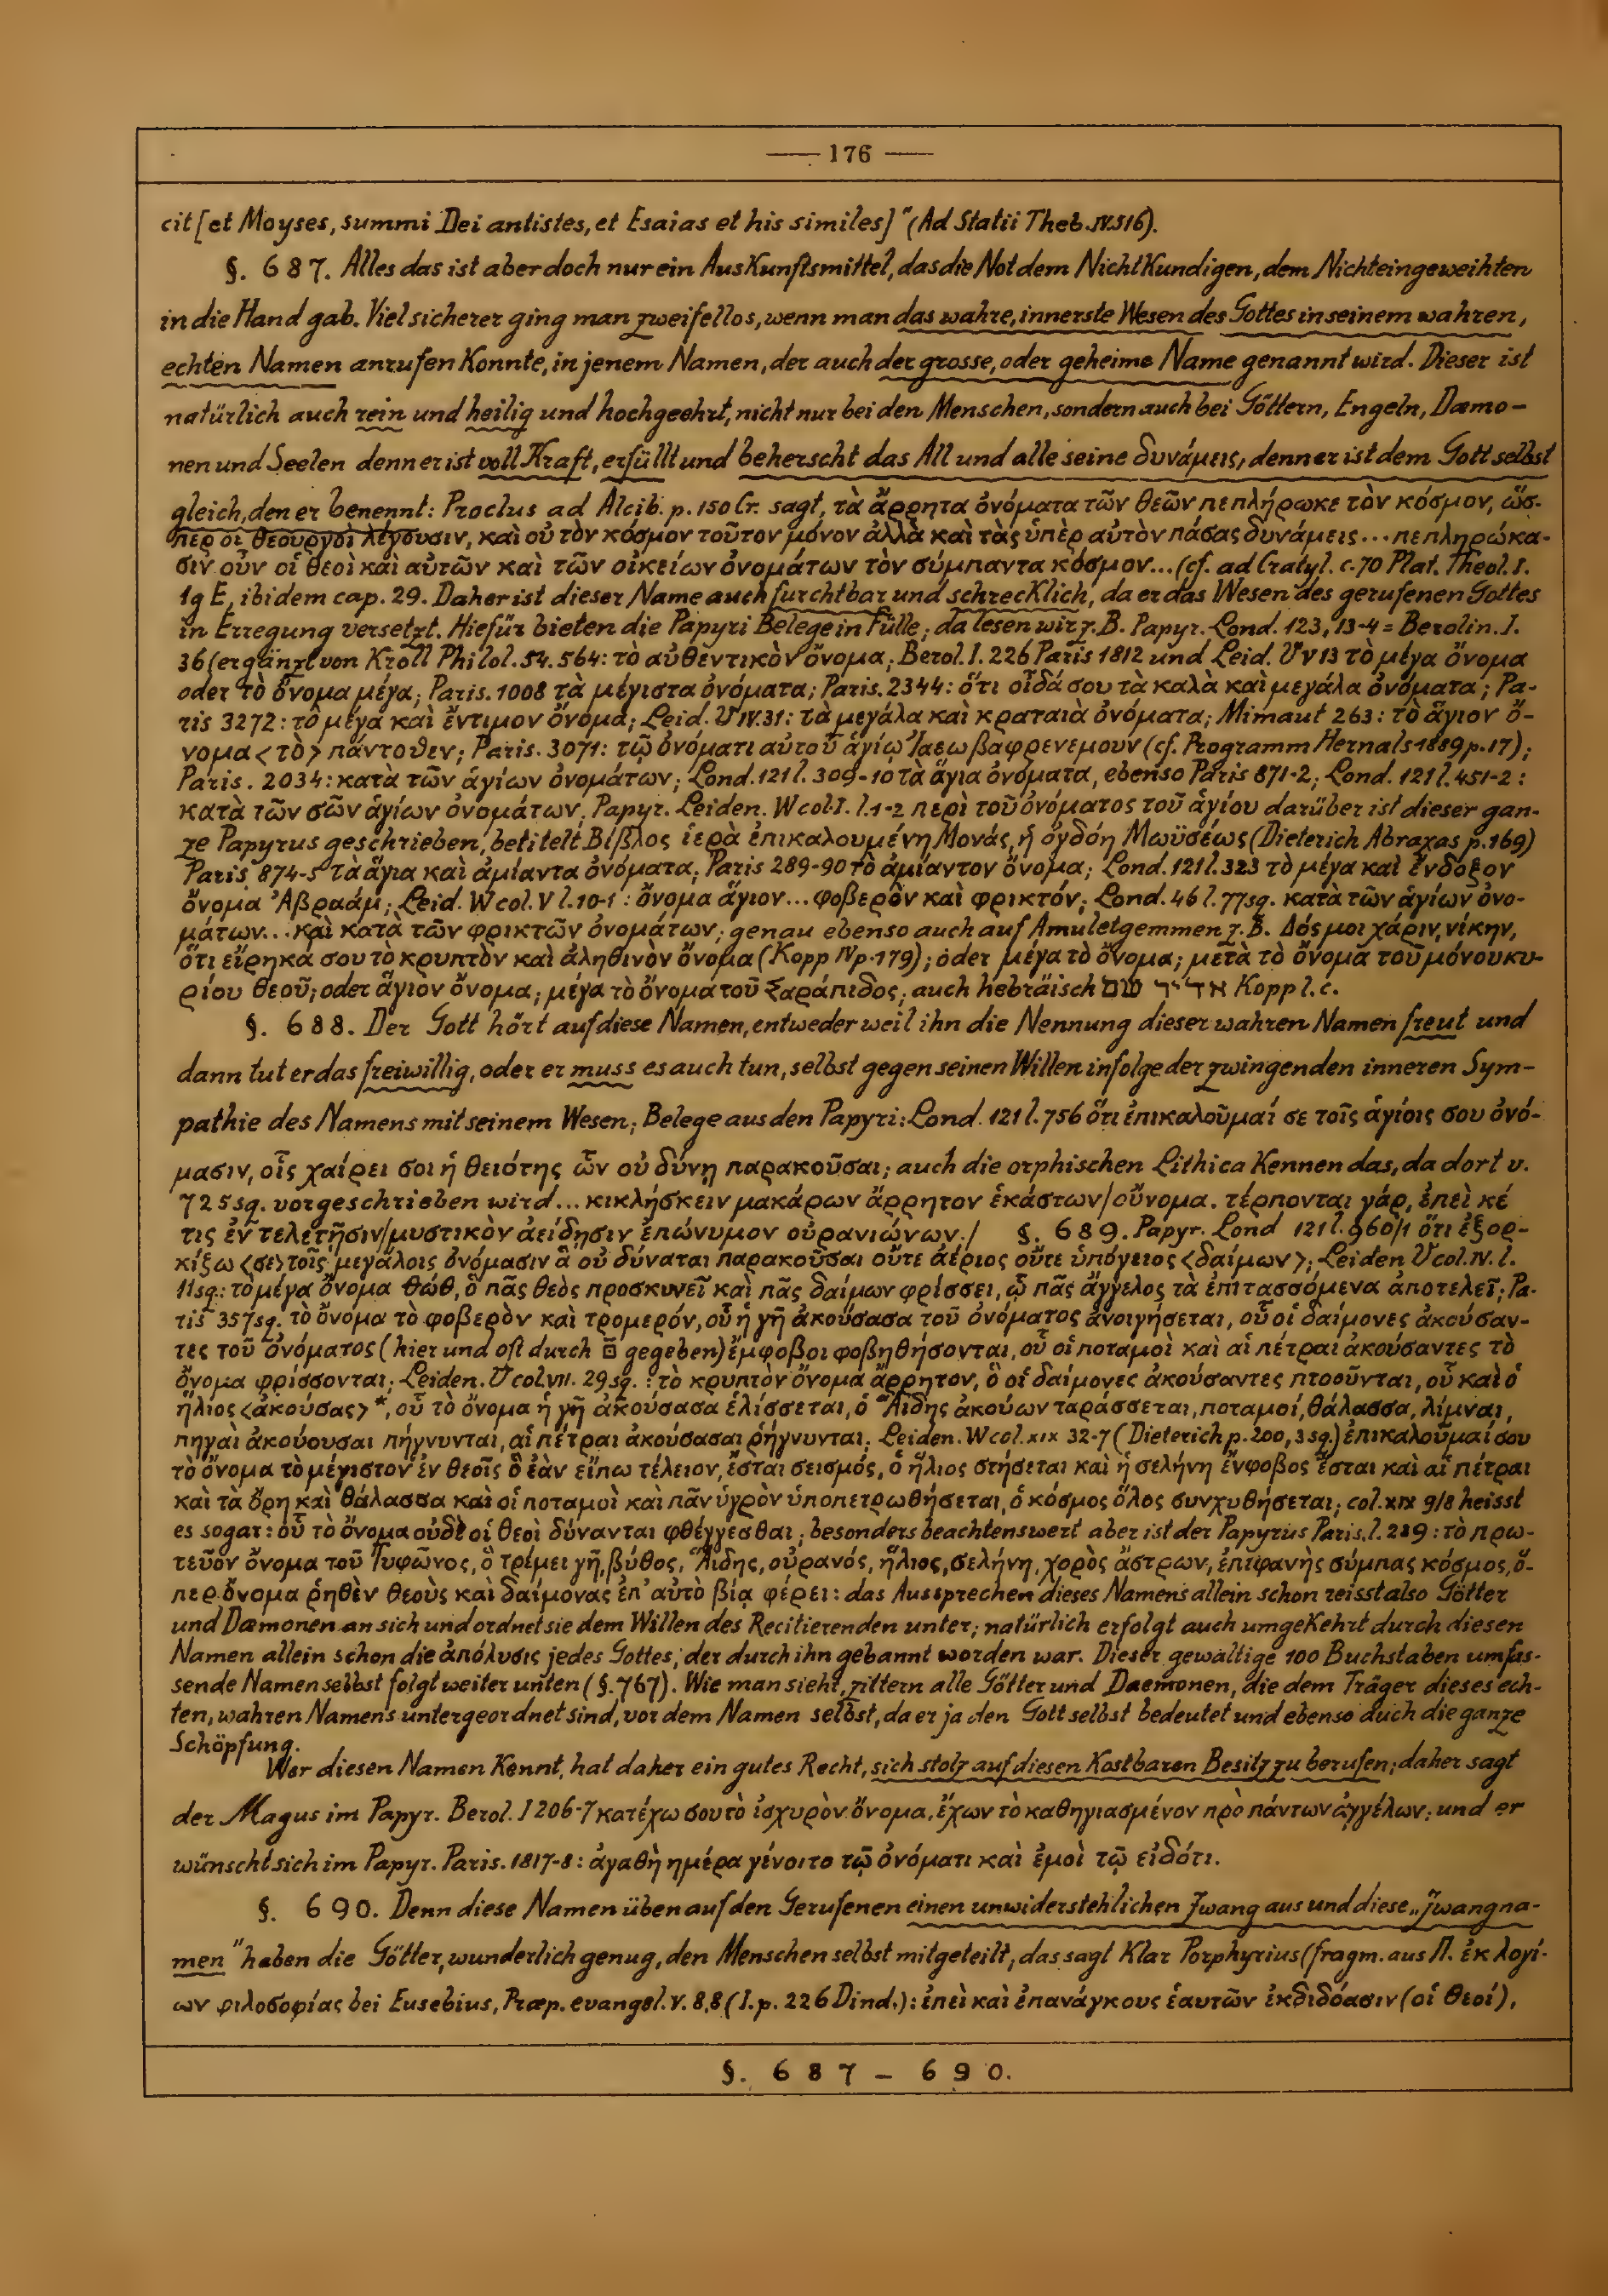 — 176 —
cit [et Moyses, summi Dei antistes, et Esaias et his similes]" (Ad Statii Theb. IV. 516).
§. 687. Alles das ist aber doch nur ein Auskunftsmittel, das die Not dem Nichtkundigen, dem Nichteingeweihten
in die Hand gab. Viel sicherer ging man zweifellos, wenn man das wahre, innerste Wesen des Gottes in seinem wahren,
echten Namen anrufen konnte, in jenem Namen, der auch der grosse, oder geheime Name genannt wird. Dieser ist
natürlich auch rein und heilig und hochgeehrt, nicht nur bei den Menschen, sondern auch bei Göttern, Engeln, Dæmo-
nen und Seelen denn er ist voll Kraft, erfüllt und beherscht das All und alle seine δυνάμεις, denn er ist dem Gott selbst
gleich, den er benennt: Proclus ad Alcib. p. 150 Cr. sagt, τὰ ἄρρητα ὀνόματα τῶν θεῶν πεπλήρωκε τὸν κόσμον, ὥσ-
περ οἱ θεουργοὶ λέγουσιν, καὶ οὐ τὸν κόσμον τοῦτον μόνον ἀλλὰ καὶ τὰς ὑπὲρ αὐτὸν πάσας δυνάμεις... πεπληρώκα-
σιν οὖν οἱ θεοὶ καὶ αὐτῶν καὶ τῶν οἰκείων ὀνομάτων τὸν σύμπαντα κόσμον... (cf. ad Cratyl. c. 70 Plat. Theol. I.
1g E, ibidem cap. 29. Daher ist dieser Name auch furchtbar und schrecklich, da er das Wesen des gerufenen Gottes
in Erregung versetzt. Hiefür bieten die Papyri Belege in Fülle; da lesen wir z. B. Papyr. Lond. 123, 13-4 = Berolin. I.
36 (ergänzt von Kroll Philol. 54. 564: τὸ αὐθεντικὸν ὄνομα; Berol. I. 226 Paris 1812 und Leid. V v 13 τὸ μέγα ὄνομα
oder τὸ ὄνομα μέγα; Paris. 1008 τὰ μέγιστα ὀνόματα; Paris. 2344: ὅτι οἶδά σου τὰ καλὰ καὶ μεγάλα ὀνόματα; Pa-
ris 3272: τὸ μέγα καὶ ἔντιμον ὄνομα; Leid. V IV. 31: τὰ μεγάλα καὶ κραταιὰ ὀνόματα; Mimaut 263: τὸ ἅγιον ὄ-
νομα <τὸ> πάντοθεν; Paris. 3071: τῷ ὀνόματι αὐτοῦ ἁγίῳ Ἰαεωβαφρενεμουν (cf. Programm Hernals 1889 p. 17);
Paris. 2034: κατὰ τῶν ἁγίων ὀνομάτων; Lond. 121 l. 309-10 τὰ ἅγια ὀνόματα, ebenso Paris 871-2; Lond. 121 l. 451-2:
κατὰ τῶν σῶν ἁγίων ὀνομάτων, Papyr. Leiden. W col. I. l. 1-2 περὶ τοῦ ὀνόματος τοῦ ἁγίου darüber ist dieser gan-
ze Papyrus geschrieben, betitelt Βίβλος ἱερὰ ἐπικαλουμένη Μονάς, ἡ ὀγδόη Μωϋσέως (Dieterich Abraxas p. 169)
Paris 874-5 τὰ ἅγια καὶ ἀμίαντα ὀνόματα; Paris 289-90 τὸ ἀμίαντον ὄνομα; Lond. 121 l. 323 τὸ μέγα καὶ ἔνδοξον
ὄνομα Ἀβραάμ; Leid. W col. V l. 10-1: ὄνομα ἅγιον... φοβερὸν καὶ φρικτόν; Lond. 46 l. 77 sq. κατὰ τῶν ἁγίων ὀνο-
μάτων... καὶ κατὰ τῶν φρικτῶν ὀνομάτων; genau ebenso auch auf Amuletgemmen z. B. Δός μοι χάριν, νίκην,
ὅτι εἴρηκά σου τὸ κρυπτὸν καὶ ἀληθινὸν ὄνομα (Kopp IV p. 179); oder μέγα τὸ ὄνομα; μετὰ τὸ ὄνομα τοῦ μόνου κυ-
ρίου θεοῦ; oder ἅγιον ὄνομα; μέγα τὸ ὄνομα τοῦ Σαράπιδος; auch hebräisch אדיר שם Kopp l. c.
§. 688. Der Gott hört auf diese Namen, entweder weil ihn die Nennung dieser wahren Namen freut und
dann tut er das freiwillig, oder er muss es auch tun, selbst gegen seinen Willen infolge der zwingenden inneren Sym-
pathie des Namens mit seinem Wesen; Belege aus den Papyri: Lond. 121 l. 756 ὅτι ἐπικαλοῦμαί σε τοῖς ἁγίοις σου ὀνό-
μασιν, οἷς χαίρει σοι ἡ θειότης ὧν οὐ δύνῃ παρακοῦσαι; auch die orphischen Lithica kennen das, da dort v.
725 sq. vorgeschrieben wird... κικλήσκειν μακάρων ἄρρητον ἑκάστων/οὔνομα. τέρπονται γάρ, ἐπεὶ κέ
τις ἐν τελετῇσιν/μυστικὸν ἀείδησιν ἐπώνυμον οὐρανιώνων./ §. 689. Papyr. Lond 121 l. 960/1 ὅτι ἐξορ-
κίζω <σε> τοῖς μεγάλοις ὀνόμασιν ἃ οὐ δύναται παρακοῦσαι οὔτε ἀέριος οὔτε ὑπόγειος <δαίμων>; Leiden V col. IV. l.
11 sq.: τὸ μέγα ὄνομα θώθ, ὃ πᾶς θεὸς προσκυνεῖ καὶ πᾶς δαίμων φρίσσει, ᾧ πᾶς ἄγγελος τὰ ἐπιτασσόμενα ἀποτελεῖ; Pa-
ris 357 sq. τὸ ὄνομα τὸ φοβερὸν καὶ τρομερόν, οὗ ἡ γῆ ἀκούσασα τοῦ ὀνόματος ἀνοιγήσεται, οὗ οἱ δαίμονες ἀκούσαν-
τες τοῦ ὀνόματος (hier und oft durch gegeben) ἔμφοβοι φοβηθήσονται, οὗ οἱ ποταμοὶ καὶ αἱ πέτραι ἀκούσαντες τὸ
ὄνομα φρίσσονται; Leiden. V col. VII. 29 sq.: τὸ κρυπτὸν ὄνομα ἄρρητον, ὃ οἱ δαίμονες ἀκούσαντες πτοοῦνται, οὗ καὶ ὁ
ἥλιος <ἀκούσας>*, οὗ τὸ ὄνομα ἡ γῆ ἀκούσασα ἑλίσσεται, ὁ Ἅιδης ἀκούων ταράσσεται, ποταμοί, θάλασσα, λίμναι,
πηγαὶ ἀκούουσαι πήγνυνται, αἱ πέτραι ἀκούσασαι ῥήγνυνται; Leiden. W col. XIX 32-7 (Dieterich p. 200, 3 sq.) ἐπικαλοῦμαί σου
τὸ ὄνομα τὸ μέγιστον ἐν θεοῖς ὃ ἐὰν εἴπω τέλειον, ἔσται σεισμός, ὁ ἥλιος στήσεται καὶ ἡ σελήνη ἔνφοβος ἔσται καὶ αἱ πέτραι
καὶ τὰ ὄρη καὶ θάλασσα καὶ οἱ ποταμοὶ καὶ πᾶν ὑγρὸν ὑποπετρωθήσεται, ὁ κόσμος ὅλος συνχυθήσεται; col. XIX 9/8 heisst
es sogar: οὗ τὸ ὄνομα οὐδὲ οἱ θεοὶ δύνανται φθέγγεσθαι; besonders beachtenswert aber ist der Papyrus Paris. l. 239: τὸ πρω-
τεῦον ὄνομα τοῦ Τυφῶνος, ὃ τρέμει γῆ, βύθος, Ἅιδης, οὐρανός, ἥλιος, σελήνη, χορὸς ἄστρων, ἐπιφανὴς σύμπας κόσμος, ὅ-
περ ὄνομα ῥηθὲν θεοὺς καὶ δαίμονας ἐπ' αὐτὸ βίᾳ φέρει: das Aussprechen dieses Namens allein schon reisst also Götter
und Dæmonen an sich und ordnet sie dem Willen des Recitierenden unter; natürlich erfolgt auch umgekehrt durch diesen
Namen allein schon die ἀπόλυσις jedes Gottes, der durch ihn gebannt worden war. Dieser gewaltige 100 Buchstaben umfas-
sende Namen selbst folgt weiter unten (§. 767). Wie man sieht, zittern alle Götter und Daemonen, die dem Träger dieses ech-
ten, wahren Namens untergeordnet sind, vor dem Namen selbst, da er ja den Gott selbst bedeutet und ebenso auch die ganze
Schöpfung.
Wer diesen Namen kennt, hat daher ein gutes Recht, sich stolz auf diesen kostbaren Besitz zu berufen; daher sagt
der Magus im Papyr. Berol. I 206-7 κατέχω σου τὸ ἰσχυρὸν ὄνομα, ἔχων τὸ καθηγιασμένον πρὸ πάντων ἀγγέλων; und er
wünscht sich im Papyr. Paris. 1817-8: ἀγαθὴ ημέρα γένοιτο τῷ ὀνόματι καὶ ἐμοὶ τῷ εἰδότι.
§. 690. Denn diese Namen üben auf den Gerufenen einen unwiderstehlichen Zwang aus und diese „Zwangna-
men" haben die Götter, wunderlich genug, den Menschen selbst mitgeteilt; das sagt klar Porphyrius (fragm. aus Π. ἐκ λογί-
ων φιλοσοφίας bei Eusebius, Præp. evangel. V. 8,8 (I. p. 226 Dind.): ἐπεὶ καὶ ἐπανάγκους ἑαυτῶν ἐκδιδόασιν (οἱ θεοί),
§. 687 – 690.